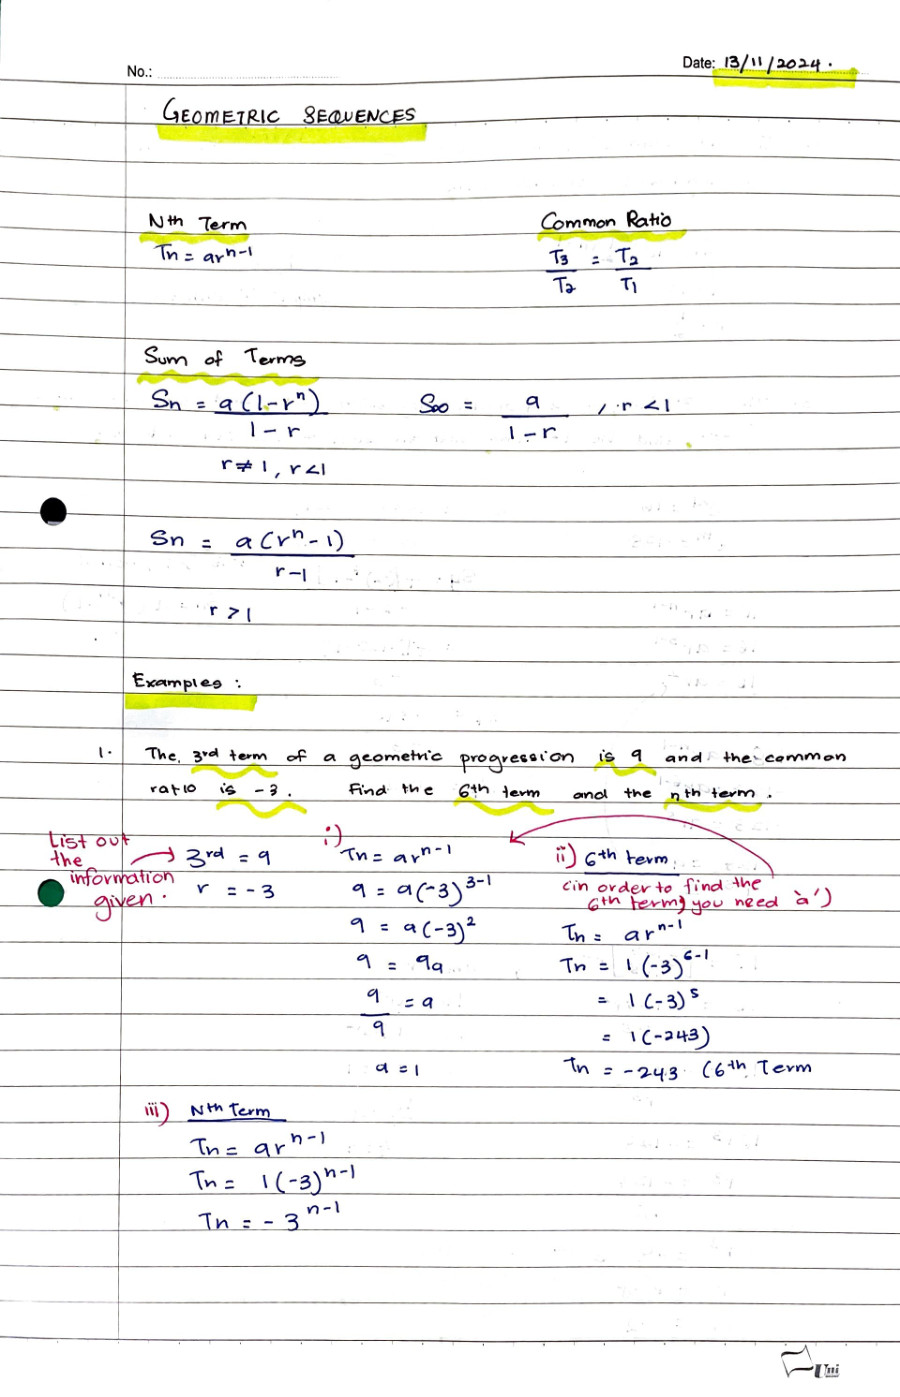 No.:
Date: 13/11/2024.
GEOMETRIC SEQUENCES
Nth Term
Tn = ar^n-1
Common Ratio
T3/T2 = T2/T1
Sum of Terms
Sn = a(1-r^n)/1-r
r≠1, r<1
S∞ = a/1-r, r<1
Sn = a(r^n-1)/r-1
r>1
Examples:
1. The 3rd term of a geometric progression is 9 and the common
ratio is -3. Find the 6th term and the nth term.
List out
the
information
given.
3rd = 9
r = -3
i)
Tn = ar^n-1
9 = a(-3)^3-1
9 = a(-3)^2
9 = 9a
9/9 = a
a = 1
ii) 6th term
(in order to find the
6th term, you need 'a')
Tn = ar^n-1
Tn = 1(-3)^6-1
= 1(-3)^5
= 1(-243)
Tn = -243 (6th Term
iii) Nth Term
Tn = ar^n-1
Tn = 1(-3)^n-1
Tn = -3^n-1
Uni